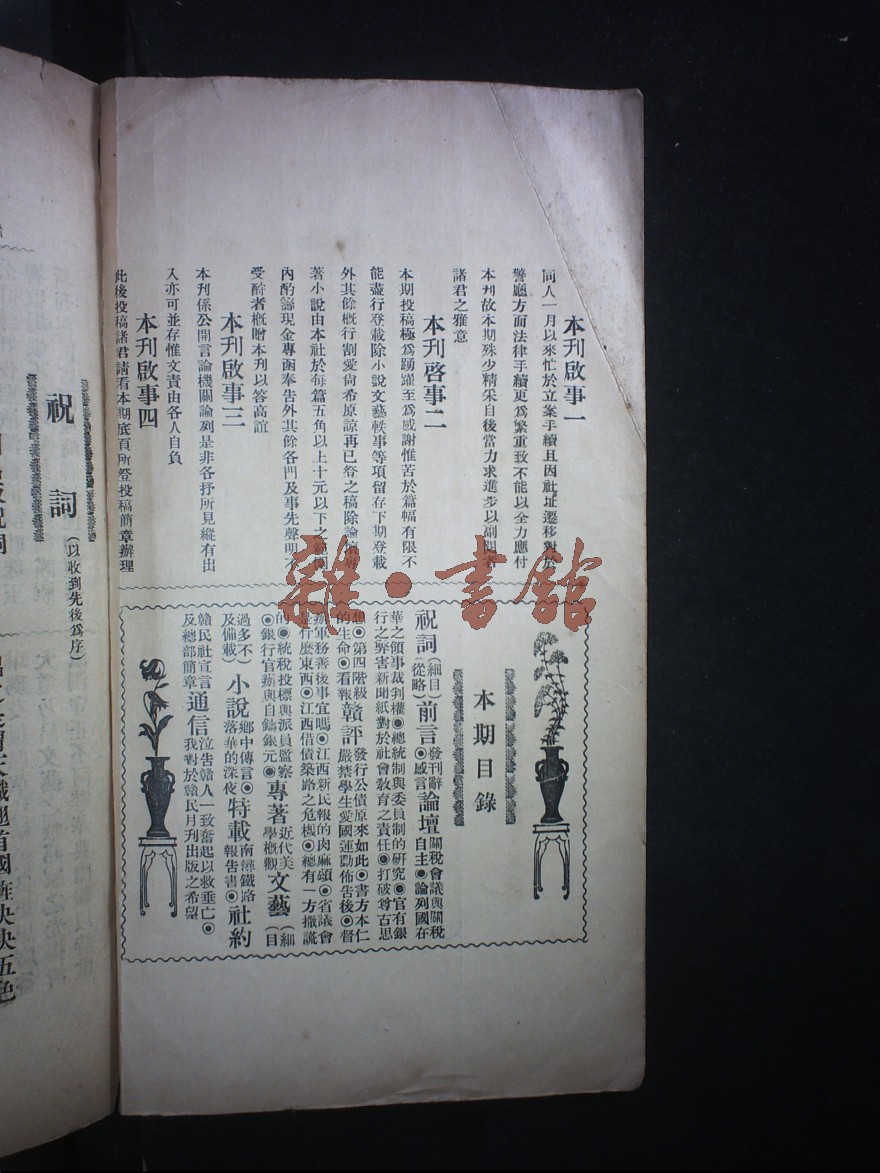 本刊啟事一
同人一月以來忙於立案手續且因社址遷移對於
警廳方面法律手續更為繁重致不能以全力應付
本刊故本期殊少精采自後當力求進步以副閱者
諸君之雅意
本刊啓事二
本期投稿極為踴躍至為感謝惟苦於篇幅有限不
能盡行登載除小說文藝軼事等項留存下期登載
外其餘概行割愛尚希原諒再已登之稿除論壇專
著小說由本社於每篇五角以上十元以下之範圍
內酌籌現金專函奉告外其餘各門及事先聲明不
受酧者概贈本刊以答高誼
本刊啟事三
本刊係公開言論機關論列是非各抒所見縱有出
入亦可並存惟文責由各人自負
本刊啟事四
此後投稿諸君請看本期底頁所登投稿簡章辦理
本期目錄
祝詞(細目從略)前言發刊辭◉感言論壇關稅會議與關稅自主◉論列國在
華之領事裁判權◉總統制與委員制的研究◉官有銀
行之弊害新聞紙對於社會敎育之責任◉打破尊古思
想◉第四階級的生命◉看報贛評發行公債原來如此◉書方本仁嚴禁學生愛國運動佈告後◉督
辦軍務善後事宜嗎◉江西新民報的肉麻頌◉省議會
是什麼東西◉江西借債築路之危機◉總有一方撒謊
的◉統稅投標與派員監察◉銀行官辦與自鑄銀元◉專著近代美學概觀文藝(細目
過多不及備載)小說鄉中傳言◉落華的深夜特載南潯鐵路報告書◉社約
贛民社宣言及總部簡章通信泣告贛人一致奮起以救垂亡◉我對於贛民月刊出版之希望
祝詞(以收到先後為序)
雜·書館